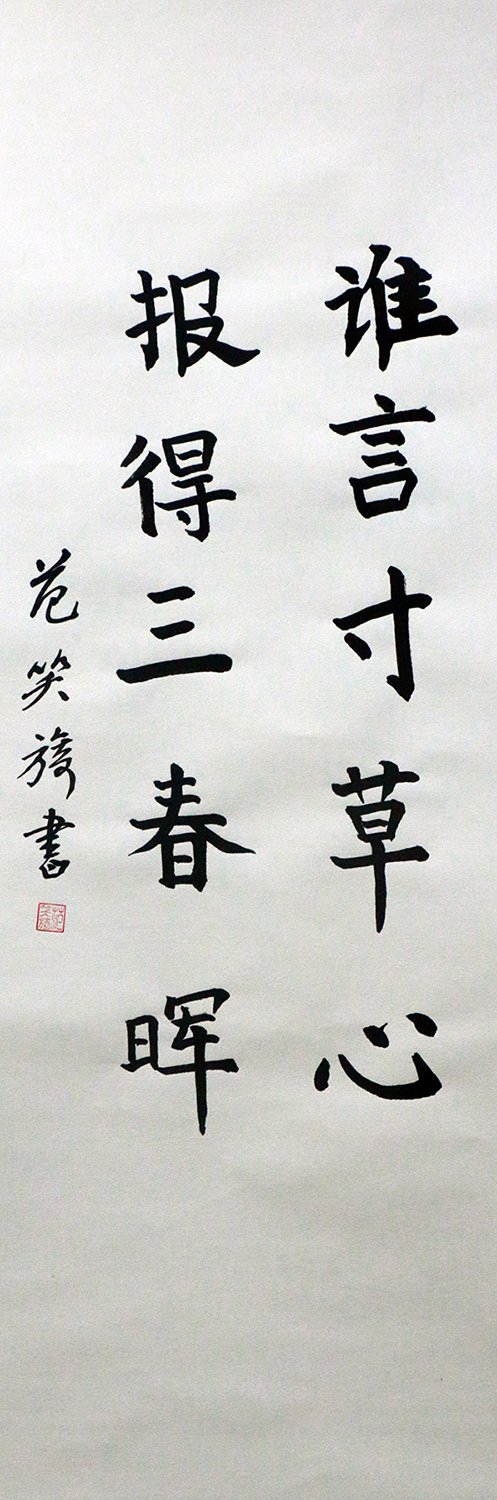 谁言寸草心
报得三春晖
范笑旖書